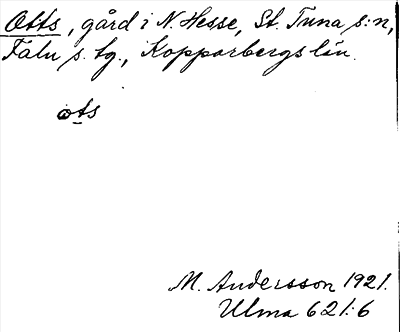 Otts, gård i N. Hesse, St. Tuna s:n,
Falu s. tg., Kopparbergs län.
ots
M. Andersson 1921.
Ulma 621:6